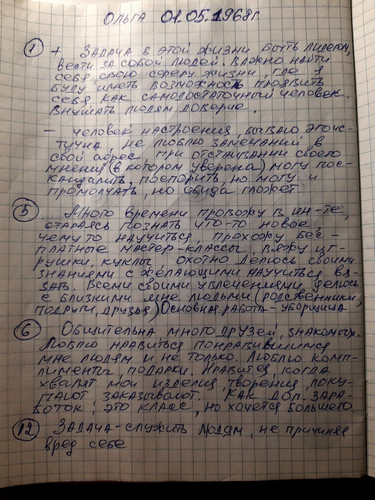 Ольга 01.05.1968г
1 + Задача в этой жизни быть лидером,
вести за собой людей. Важно найти
себя, свою сферу жизни, где я
буду иметь возможность проявить
себя как самодостаточный человек.
Внушать людям доверие.
– человек настроения, бываю эгоис-
тична, не люблю замечаний в
свой адрес. При отстаивании своего
мнения (в котором уверена) могу пос-
кандалить, поспорить, но могу и
промолчать, но обида гложет.
5 Много времени провожу в ин-те,
стараясь познать что-то новое,
чему-то научиться, прохожу бес-
платные мастер-классы. Вяжу иг-
рушки, куклы охотно делюсь своими
знаниями с желающими научиться вя-
зать. Всеми своими увлечениями делюсь
с близкими мне людьми (родственники,
подруги, друзья) Основная работа-уборщица
6 Общительна много друзей, знакомых.
Люблю нравиться понравившимся
мне людям и не только. Люблю комп-
лименты, подарки. Нравится, когда
хвалят мои изделия, творения, поку-
пают заказывают. Как доп. зара-
боток, это класс, но хочется большего
12 Задача-служить людям, не причиняя
вред себе